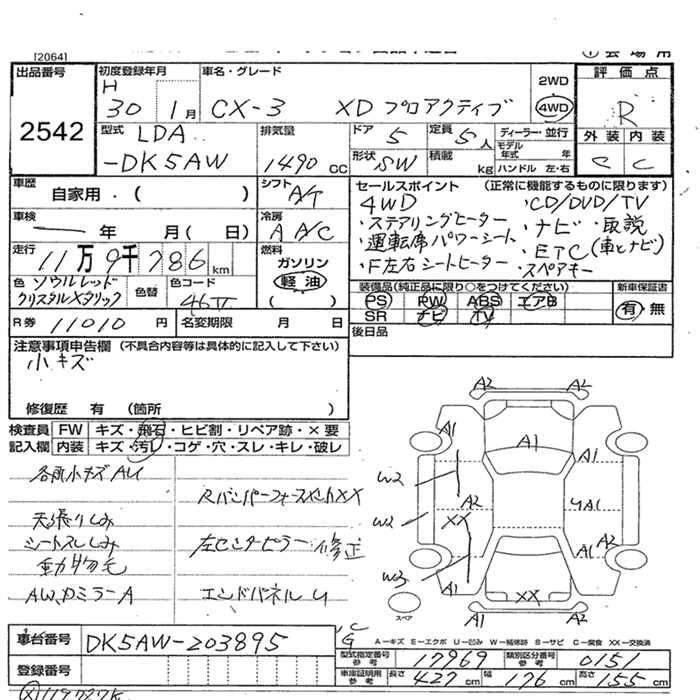 [2064]
出品番号
2542
初度登録年月
H
30 1月
車名・グレード
CX-3 XD プロアクティブ
2WD
4WD
評価点
R
外装 内装
C C
型式
LDA
-DK5AW
排気量
1490 CC
ドア 5
定員 5人
形状 SW
積載 kg
ディーラー・並行
モデル年式 年
ハンドル 左・右
車歴
自家用・( )
シフト A/T
車検
年 月( 日)
冷房
A A/C
走行
11万9千786km
燃料
ガソリン
軽油
( )
色 ソウルレッド
クリスタルメタリック
色替
色コード
46V
R券 11010円
名変期限 月 日
セールスポイント (正常に機能するものに限ります)
4WD
・ステアリングヒーター
・運転席パワーシート
・F左右シートヒーター
・CD/DVD/TV
・ナビ ・取説
・ETC (車とナビ)
・スペアキー
装備品(純正品に限り○をつけてください)
PS PW ABS エアB
SR ナビ TV
新車保証書
有・無
後日品
注意事項申告欄 (不具合内容等は具体的に記入して下さい)
小キズ
修復歴 有 (箇所 )
検査員
記入欄
FW キズ・飛石・ヒビ割・リペア跡・×要
内装 キズ・汚れ・コゲ・穴・スレ・キレ・破レ
各所小キズAU
天張りしみ
シートスレしみ
動物毛
AW、ドミラーA
Rバンパーフォースメント××
左センターピラー 修正
エンドパネル U
A2 A2
A1 A1 A1
W2
A2
××
W2
4A1
W3
A1 A1 A2
××
A2 A2
スペア
A−キズ E−エクボ U−凹み W−補修跡 S−サビ C−腐食 XX−交換済
車台番号 DK5AW-203895
登録番号
型式指定番号
参考
17969
類別区分番号
参考
0151
車庫証明用
参考
長さ 427cm
幅 176cm
高さ 155cm